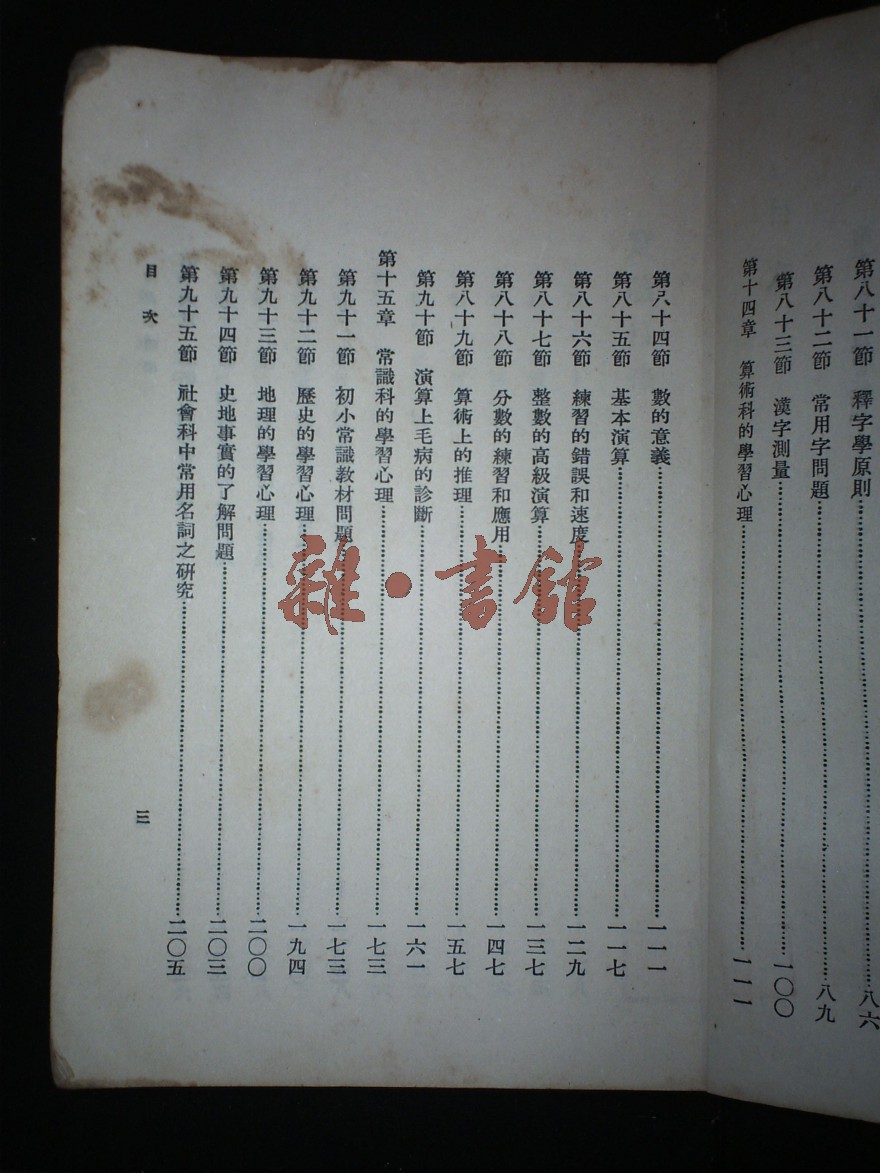 第八十一節　釋字學原則…………八六
第八十二節　常用字問題…………八九
第八十三節　漢字測量…………一〇〇
第十四章　算術科的學習心理…………一一一
第八十四節　數的意義…………一一一
第八十五節　基本演算…………一一七
第八十六節　練習的錯誤和速度…………一二九
第八十七節　整數的高級演算…………一三七
第八十八節　分數的練習和應用…………一四七
第八十九節　算術上的推理…………一五七
第九十節　演算上毛病的診斷…………一六一
第十五章　常識科的學習心理…………一七三
第九十一節　初小常識教材問題…………一七三
第九十二節　歷史的學習心理…………一九四
第九十三節　地理的學習心理…………二〇〇
第九十四節　史地事實的了解問題…………二〇三
第九十五節　社會科中常用名詞之研究…………二〇五
目次
三
雜·書館